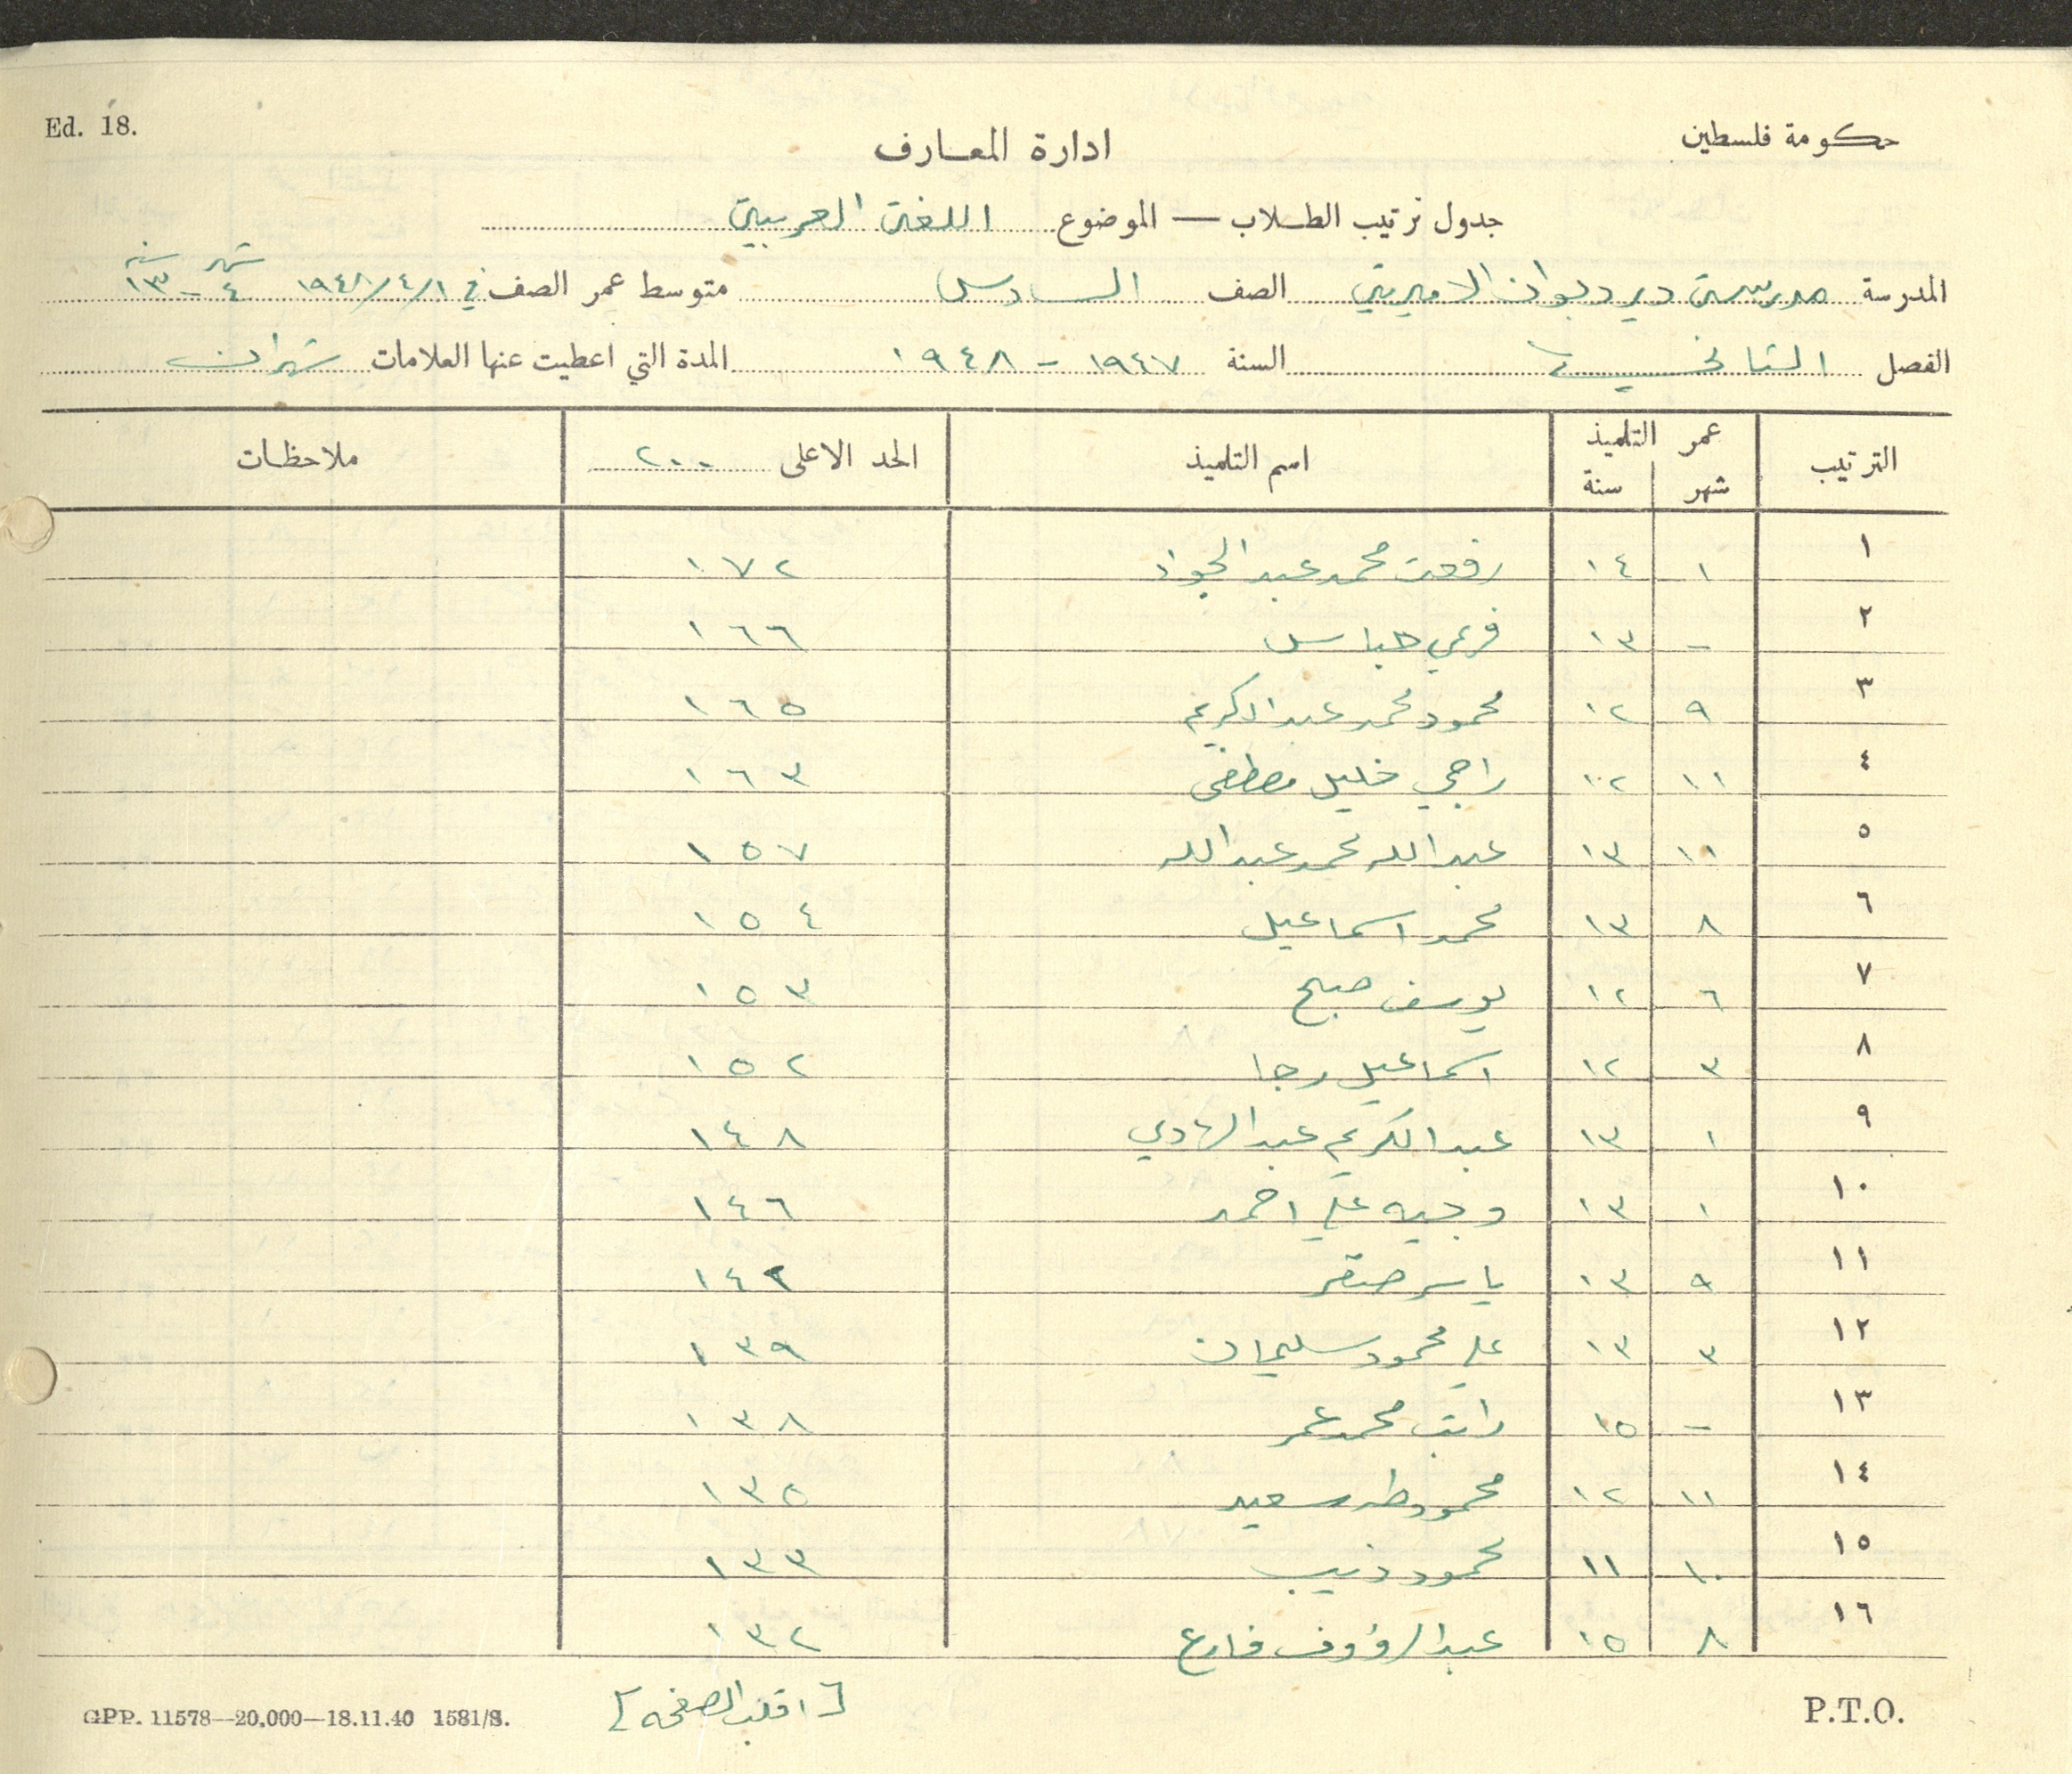 Ed. 18.
حكومة فلسطين
ادارة المعارف
جدول ترتيب الطلاب — الموضوع اللغة العربية
المدرسة مدرسة دير دبوان الاميرية الصف السادس متوسط عمر الصف في ١/٤/١٩٤٨ شهر ٤ - سنة ١٣
الفصل الثاني السنة ١٩٤٧ - ١٩٤٨ المدة التي اعطيت عنها العلامات شهران
الترتيب عمر التلميذ شهر سنة اسم التلميذ الحد الاعلى ٢٠٠ ملاحظات
١ ١ ١٤ رفعت محمد عبد الجواد ١٧٢
٢ - ١٣ فرعي هباس ١٦٦
٣ ٩ ١٢ محمود محمد عبد الكريم ١٦٥
٤ ١١ ١٢ راجي خليل مصطفى ١٦٣
٥ ١١ ١٣ عبد الله محمد عبد الله ١٥٧
٦ ٨ ١٣ محمد اسماعيل ١٥٤
٧ ٦ ١٢ يوسف صبح ١٥٣
٨ ٣ ١٢ اسماعيل رجا ١٥٢
٩ ١ ١٣ عبد الكريم عبد الهادي ١٤٨
١٠ ١ ١٣ وجيه علي احمد ١٤٦
١١ ٩ ١٣ ياسر صقر ١٤٢
١٢ ٣ ١٣ علي محمود سليمان ١٣٩
١٣ - ١٥ راتب محمد عمر ١٣٨
١٤ ١١ ١٢ محمود طه سعيد ١٣٥
١٥ ١٠ ١١ محمود ذيب ١٣٣
١٦ ٨ ١٥ عبد الرؤوف فارع ١٣٢
P.T.O.
[اقلب الصفحة]
GPP. 11578—20,000—18.11.40 1581/S.